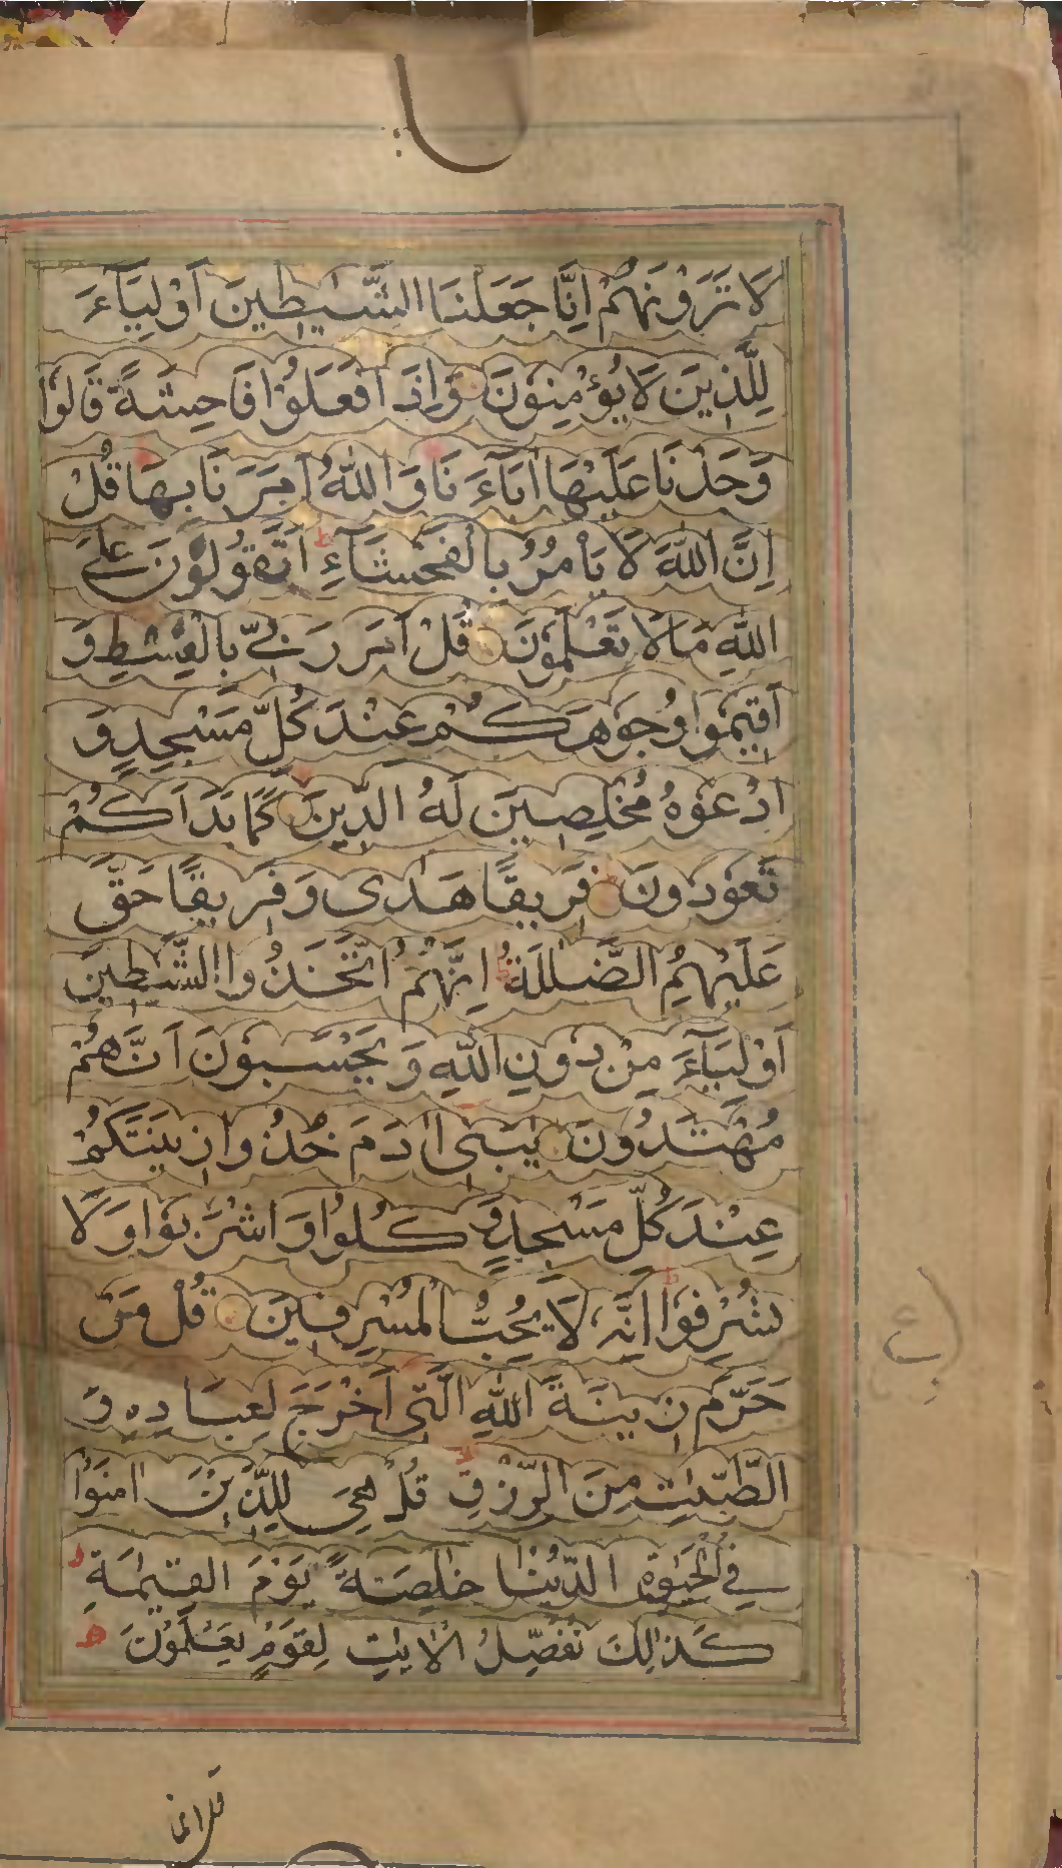 لَا تَرَوْنَهُمْ اِنَّا جَعَلْنَا الشَّيٰطِيْنَ اَوْلِيَآءَ
لِلَّذِيْنَ لَا يُؤْمِنُوْنَ وَاِذَا فَعَلُوْا فَاحِشَةً قَالُوْا
وَجَدْنَا عَلَيْهَا اٰبَآءَنَا وَاللّٰهُ اَمَرَنَا بِهَا قُلْ
اِنَّ اللّٰهَ لَا يَاْمُرُ بِالْفَحْشَآءِ ط اَتَقُوْلُوْنَ عَلَى
اللّٰهِ مَا لَا تَعْلَمُوْنَ قُلْ اَمَرَ رَبِّيْ بِالْقِسْطِ وَ
اَقِيْمُوْا وُجُوْهَكُمْ عِنْدَ كُلِّ مَسْجِدٍ وَ
ادْعُوْهُ مُخْلِصِيْنَ لَهُ الدِّيْنَ كَمَا بَدَاَكُمْ
تَعُوْدُوْنَ فَرِيْقًا هَدٰى وَفَرِيْقًا حَقَّ
عَلَيْهِمُ الضَّلٰلَةُ ط اِنَّهُمُ اتَّخَذُوا الشَّيٰطِيْنَ
اَوْلِيَآءَ مِنْ دُوْنِ اللّٰهِ وَيَحْسَبُوْنَ اَنَّهُمْ
مُهْتَدُوْنَ يٰبَنِيْ اٰدَمَ خُذُوْا زِيْنَتَكُمْ
عِنْدَ كُلِّ مَسْجِدٍ وَّكُلُوْا وَاشْرَبُوْا وَلَا
تُسْرِفُوْا ط اِنَّهٗ لَا يُحِبُّ الْمُسْرِفِيْنَ قُلْ مَنْ
حَرَّمَ زِيْنَةَ اللّٰهِ الَّتِيْ اَخْرَجَ لِعِبَادِهٖ وَ
الطَّيِّبٰتِ مِنَ الرِّزْقِ ط قُلْ هِيَ لِلَّذِيْنَ اٰمَنُوْا
فِي الْحَيٰوةِ الدُّنْيَا خَالِصَةً يَّوْمَ الْقِيٰمَةِ ط
كَذٰلِكَ نُفَصِّلُ الْاٰيٰتِ لِقَوْمٍ يَّعْلَمُوْنَ ط
ع
قل انما